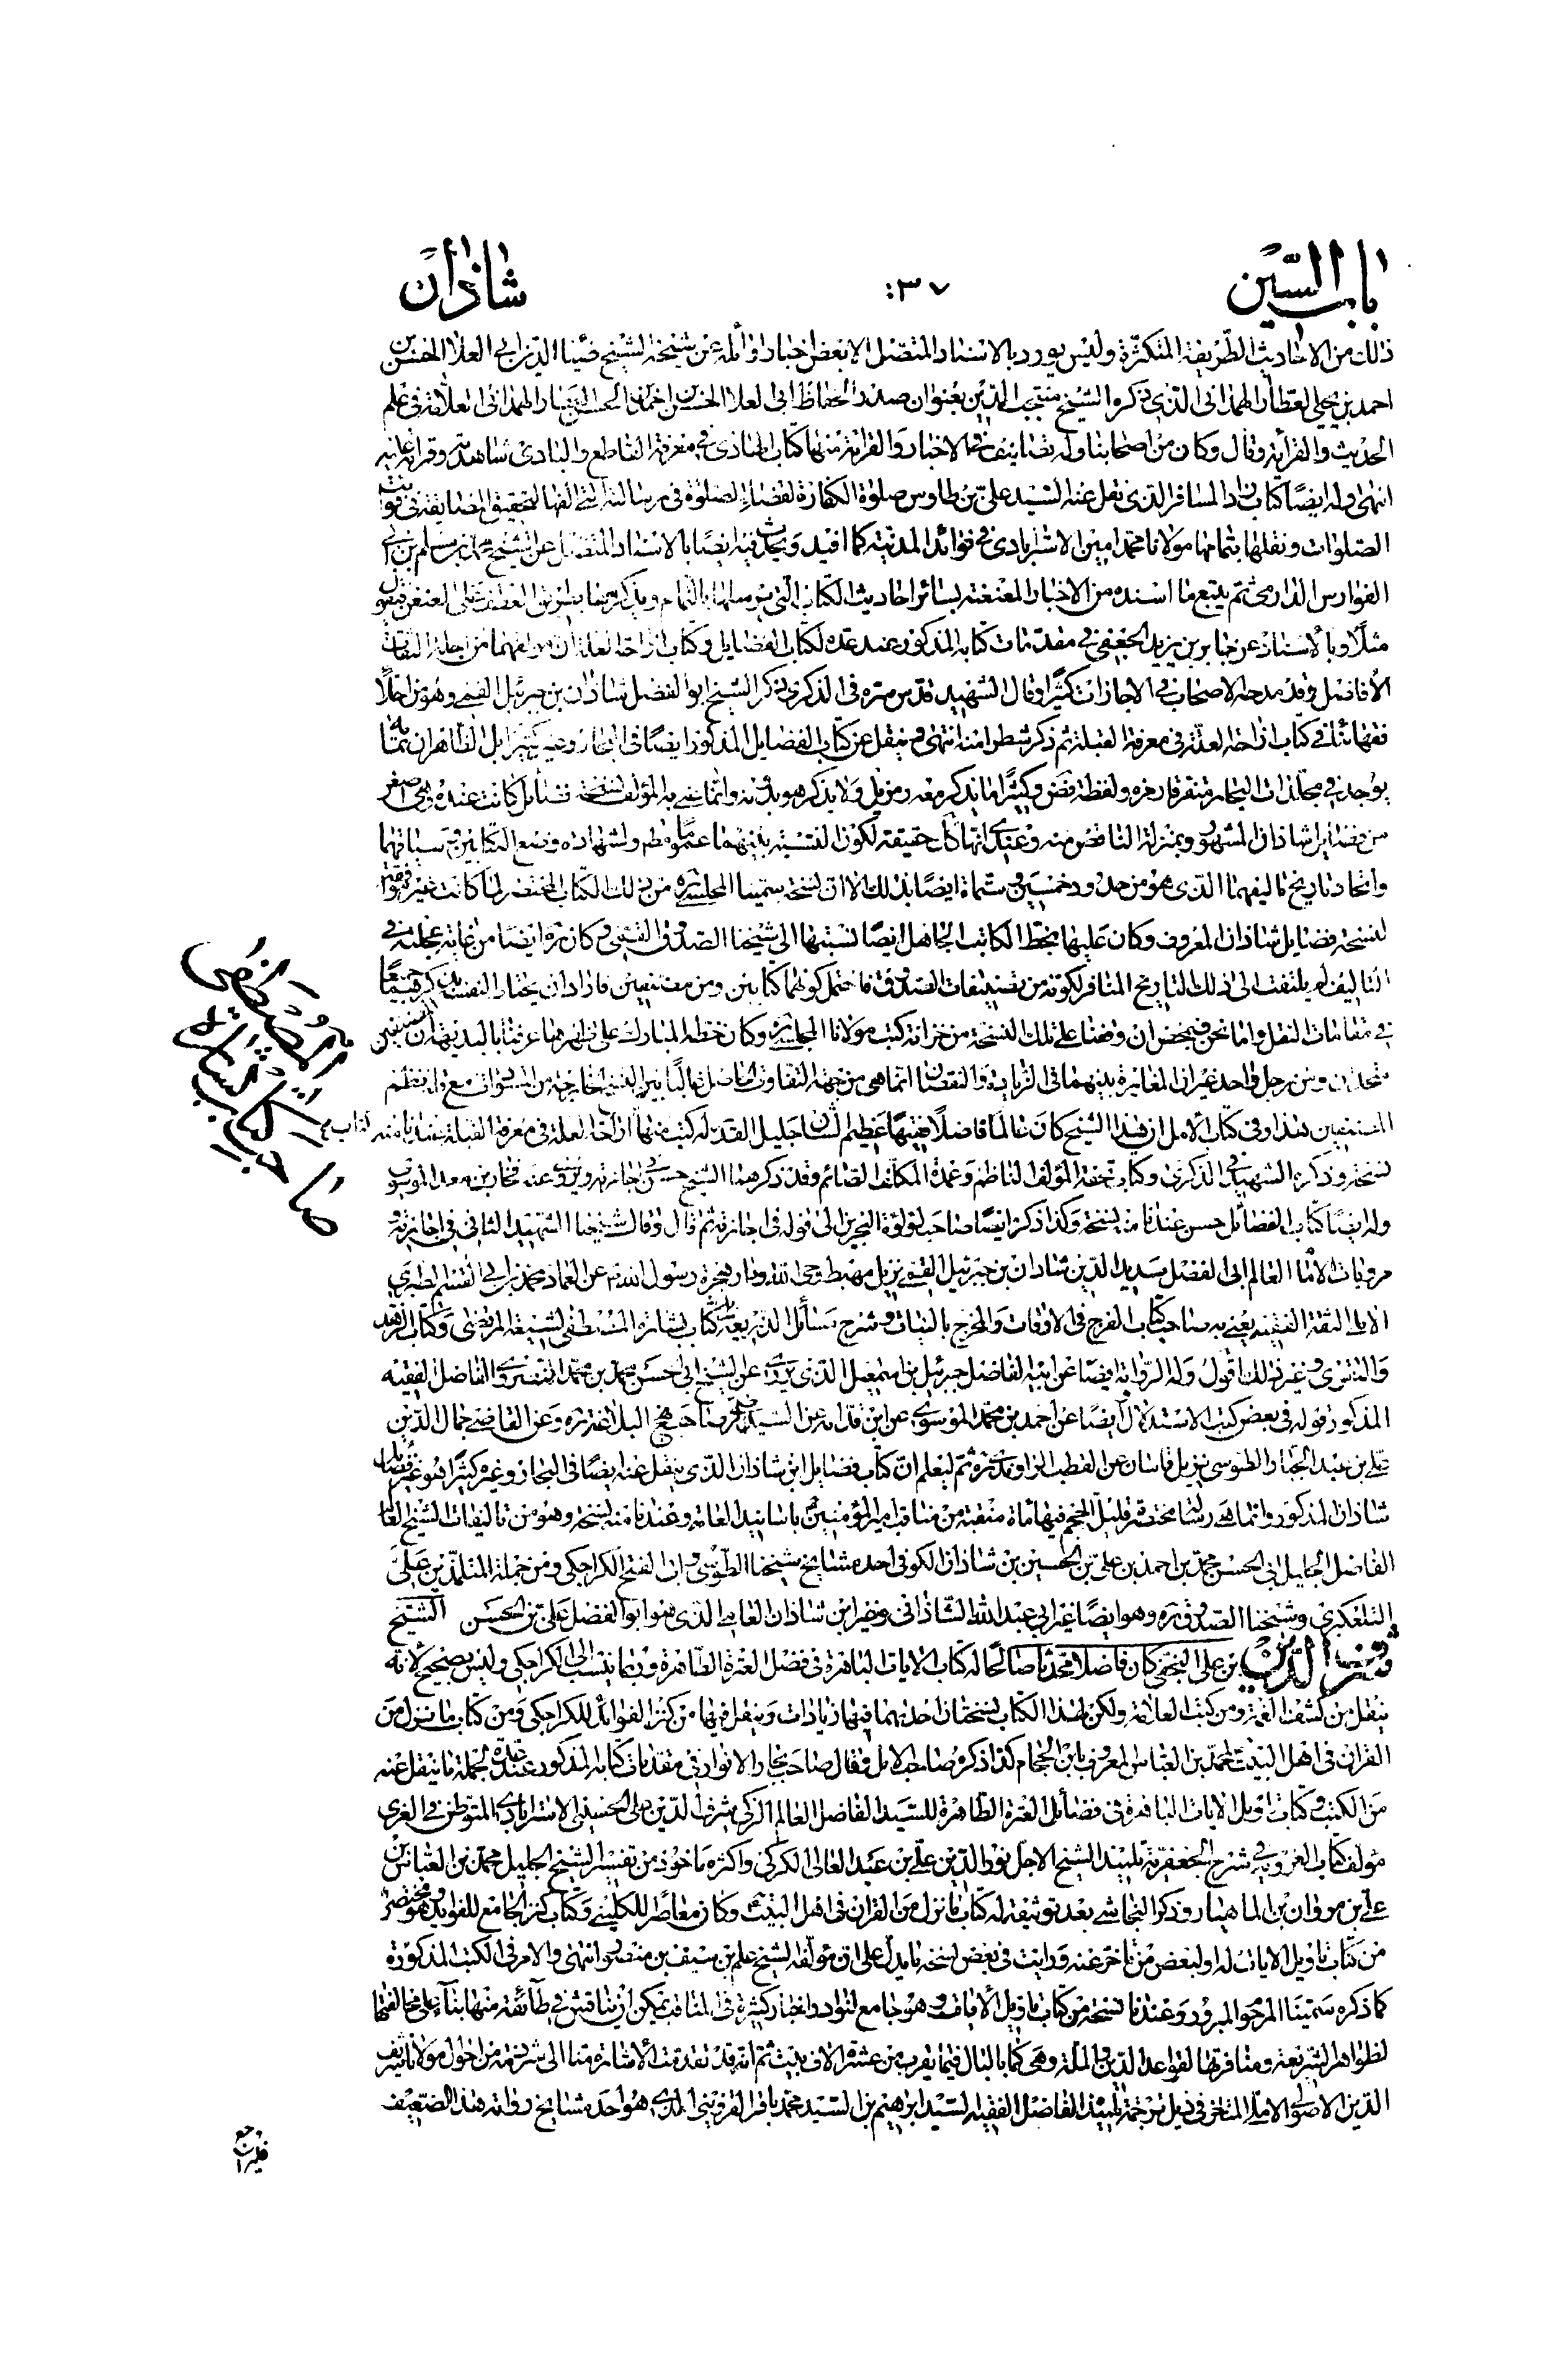 باب السّين
٣٣٧
شاذان
ذلك من الاحاديث الطّريفة المتكثّرة وليس يورد بالاسناد المتّصل الا بعض اخبار اوائله عن شيخه الشيخ ضياء الدّين ابي العلاء الحسن بن
احمد بن يحيى العطّار الهمداني الذي ذكره الشيخ منتجب الدّين بعنوان صدر الحفاظ ابي العلاء الحسن بن احمد بن الحسين العطّار الهمداني العلّامة في علم
الحديث والقرائة وقال وكان من اصحابنا وله تصانيف في الاخبار والقرائة منها كتاب الهادي في معرفة المقاطع والمبادي شاهدته وقرات عليه
انتهى وله ايضًا كتاب زاد المسافر الذي نقل عنه السّيد علي بن طاوس صلوة الكفارة لقضاء الصلوة في رسالته التي الّفها لتحقيق المضايقة في فوايت
الصّلوات ونقلها بتمامها مولانا محمّد امين الاسترابادي في فوائد المدنية كما افيد ويحدّث فيه ايضًا بالاسناد المتّصل عن الشيخ محمّد بن مسلم بن ابي
الفوارس الدارمي ثم يتبع ما اسنده من الاخبار المعنعنة بسائر احاديث الكتاب التي يرسلها بالتمام ويذكرها بطريق العطف على المعنعن فيقول
مثلًا وبالاسناد عن جابر بن يزيد الجعفي في مقدّمات كتابه المذكور عند عدّه لكتاب الفضايل وكتاب ازاحة العلة ان مؤلفهما من اجلة الثقات
الافاضل وقد مدحه الاصحاب في الاجازات كثيرًا وقال الشهيد قدّس سره في الذكرى ذكر الشيخ ابو الفضل شاذان بن جبرئيل القمي وهو من اجلّاء
فقهائنا في كتاب ازاحة العلّة في معرفة القبلة ثم ذكر شطرا منه انتهى وينقل عن كتاب الفضايل المذكور ايضًا في البحار وغيره كثيرا بل الظاهر ان تمامه
يوجد في مجلّدات البحار متفرقا رمزه ولفظة فض وكثيرًا ما يذكر معه رمز يل ولا يذكر هو بدونه وانما
من فضايل شاذان المشهور وبمنزلة الناقص منه وعندي انهما كتاب حقيقة لكون النسبة بينهما عمومًا
واتحاد تاريخ تاليفهما الذي هو من حدود خمسين وستمائة ايضًا بذلك الا ان نسخة سميّنا المجلسي ره من ذلك الكتاب المختصر لما كانت غير موافقة
لنسخة فضايل شاذان المعروف وكان عليها بخطّ الكاتب الجاهل ايضًا نسبتها الى شيخنا الصّدوق القمّي وكان ره ايضًا من غاية عجلته في
التاليف لم يلتفت الى ذلك التاريخ المنافر لكونه من تصنيفات الصدوق فاحتمل كونهما كتابين ومن مصنفين فاراد ان يختار النفسه ذكرهما جميعًا
في مقامات النقل واما نحن فبمحض ان وقفنا على تلك النسخة من خزانة كتب مولانا المجلسي ره وكان خطه المبارك على ظهرهما عرفنا بالبديهة ان النسختين
متحدتان ومن رجل واحد غير ان المغايرة بينهما في الزيادة والنقصان انما هي من جهة التفاوت الحاصل غالبًا بين النسخ
المصنفين هذا وفي كتاب الامل ان هذا الشيخ كان عالمًا فاضلًا فقيهًا عظيم الشان جليل القدر له كتب منها ازاحة العلة في معرفة القبلة عندنا منه
نسخة وذكره الشهيد في الذكرى وكتاب تحفة المؤلف الناظم وعمدة المكلف الصائم وقد ذكر هذا الشيخ حسن في اجازته ويروي عنه فخار بن معد الموسوي
وله ايضًا كتاب الفضائل حسن عندنا منه نسخة وكذا ذكر ايضًا صاحب لؤلؤة البحرين الى قوله في اجازته ثم قال وقال شيخنا الشهيد الثاني في اجازته و
مرويات الامام العالم ابي الفضل سديد الدّين شاذان بن جبرئيل القمي نزيل مهبط وحي الله ودار هجرة رسول الله ص عن العماد محمد بن ابي القسم الطبري
الاملي الثقة الفقيه يعني به صاحب كتاب الفرج في الاوقات والمخرج بالبينات وشرح مسائل الذريعة وكتاب بشارة المصطفى لشيعة المرتضى وكتاب الزهد
والتقوى وغير ذلك اقول وله الرواية ايضًا عن ابيه الفاضل جبرئيل بن اسمعيل الذي يروي عن الشيخ ابي الحسن محمد بن محمد البصروي الفاضل الفقيه
المذكور قوله في بعض كتب الاستدلال ايضًا عن احمد بن محمّد الموسوي عن ابن قدامه عن السّيد الرضي صاحب نهج البلاغة ره وعن القاضي جمال الدّين
علي بن عبد الجبار الطوسي نزيل قاسان عن القطب الراوندي ره ثم ليعلم انّ كتاب فضايل ابن شاذان الذي ينقل عنه ايضًا في البحار وغيره كثيرًا هو غير فضايل
شاذان المذكور وانما هي رسالة مختصرة قليل الحجم فيها مائة منقبة من مناقب امير المؤمنين ع باسانيد العامة وعندنا منه نسخة وهو من تاليفات الشيخ العالم
الفاضل الجليل ابي الحسن محمّد بن احمد بن علي بن الحسين بن شاذان الكوفي احد مشايخ شيخنا الطوسي وابي الفتح الكراجكي ومن جملة المتلمّذين على
التلعكبري وشيخنا الصّدوق ره وهو ايضًا غير ابي عبد الله الشاذاني وغير ابن شاذان العامي الذي هو ابو الفضل علي بن الحسن الشيخ
شرف الدين بن علي النجفي كان فاضلا محدثا صالحًا له كتاب الايات الباهرة في فضل العترة الطاهرة وربما ينسب الى الكراجكي وليس بصحيح لانه
ينقل من كشف الغمّة ومن كتب العلامة ولكن لهذا الكتاب نسختان احدهما فيها زيادات وينقل فيها من كنز الفوائد للكراجكي ومن كتاب ما نزل من
القران في اهل البيت لمحمّد بن العباس المعروف بابن الجحام كذا ذكره صاحب الامل وقال صاحب بحار الانوار في مقدمات كتابه المذكور عند عدّه لجملة ما ينقل عنه
من الكتب وكتاب تاويل الايات الباهرة في فضائل العترة الطاهرة للسّيد الفاضل العالم الزكي شرف الدّين علي الحسيني الاسترابادي المتوطن في الغري
مؤلف كتاب الغروية في شرح الجعفرية تلميذ الشيخ الاجل نور الدّين علي بن عبد العالي الكركي واكثره ماخوذ من تفسير الشيخ الجليل محمد بن العباس بن
علي بن مروان بن الماهيار وذكر النجاشي بعد توثيقه له كتاب ما نزل من القران في اهل البيت وكان معاصرًا للكليني وكتاب كنز الجامع الفوايد وهو مختصر
من كتاب تاويل الايات له او لبعض من تاخر عنه ورايت في بعض نسخه ما يدل على ان مؤلفه الشيخ علم بن سيف بن منصور انتهى والامر في الكتب المذكورة
كما ذكره سميّنا المرحوم المبرور وعندنا نسخة من كتاب تاويل الايات وهو جامع لنوادر اخبار كثيرة في المناقب يمكن ان يناقش في طائفة منها بناء على مخالفتها
لظواهر الشريعة ومنافرتها لقواعد الدّين والملة وهي كما بالبال فيما يقرب من عشرة الاف بيت ثم انه قد تقدّمت الاشارة منا الى شرذمة من احوال مولانا شريف
الدّين الاصولي الاملي المتاخر في ذيل ترجمة تلميذه الفاضل الفقيه السّيد ابراهيم بن السّيد محمّد باقر القزويني الذي هو احد مشايخ رواية هذا الضعيف
فليراجع